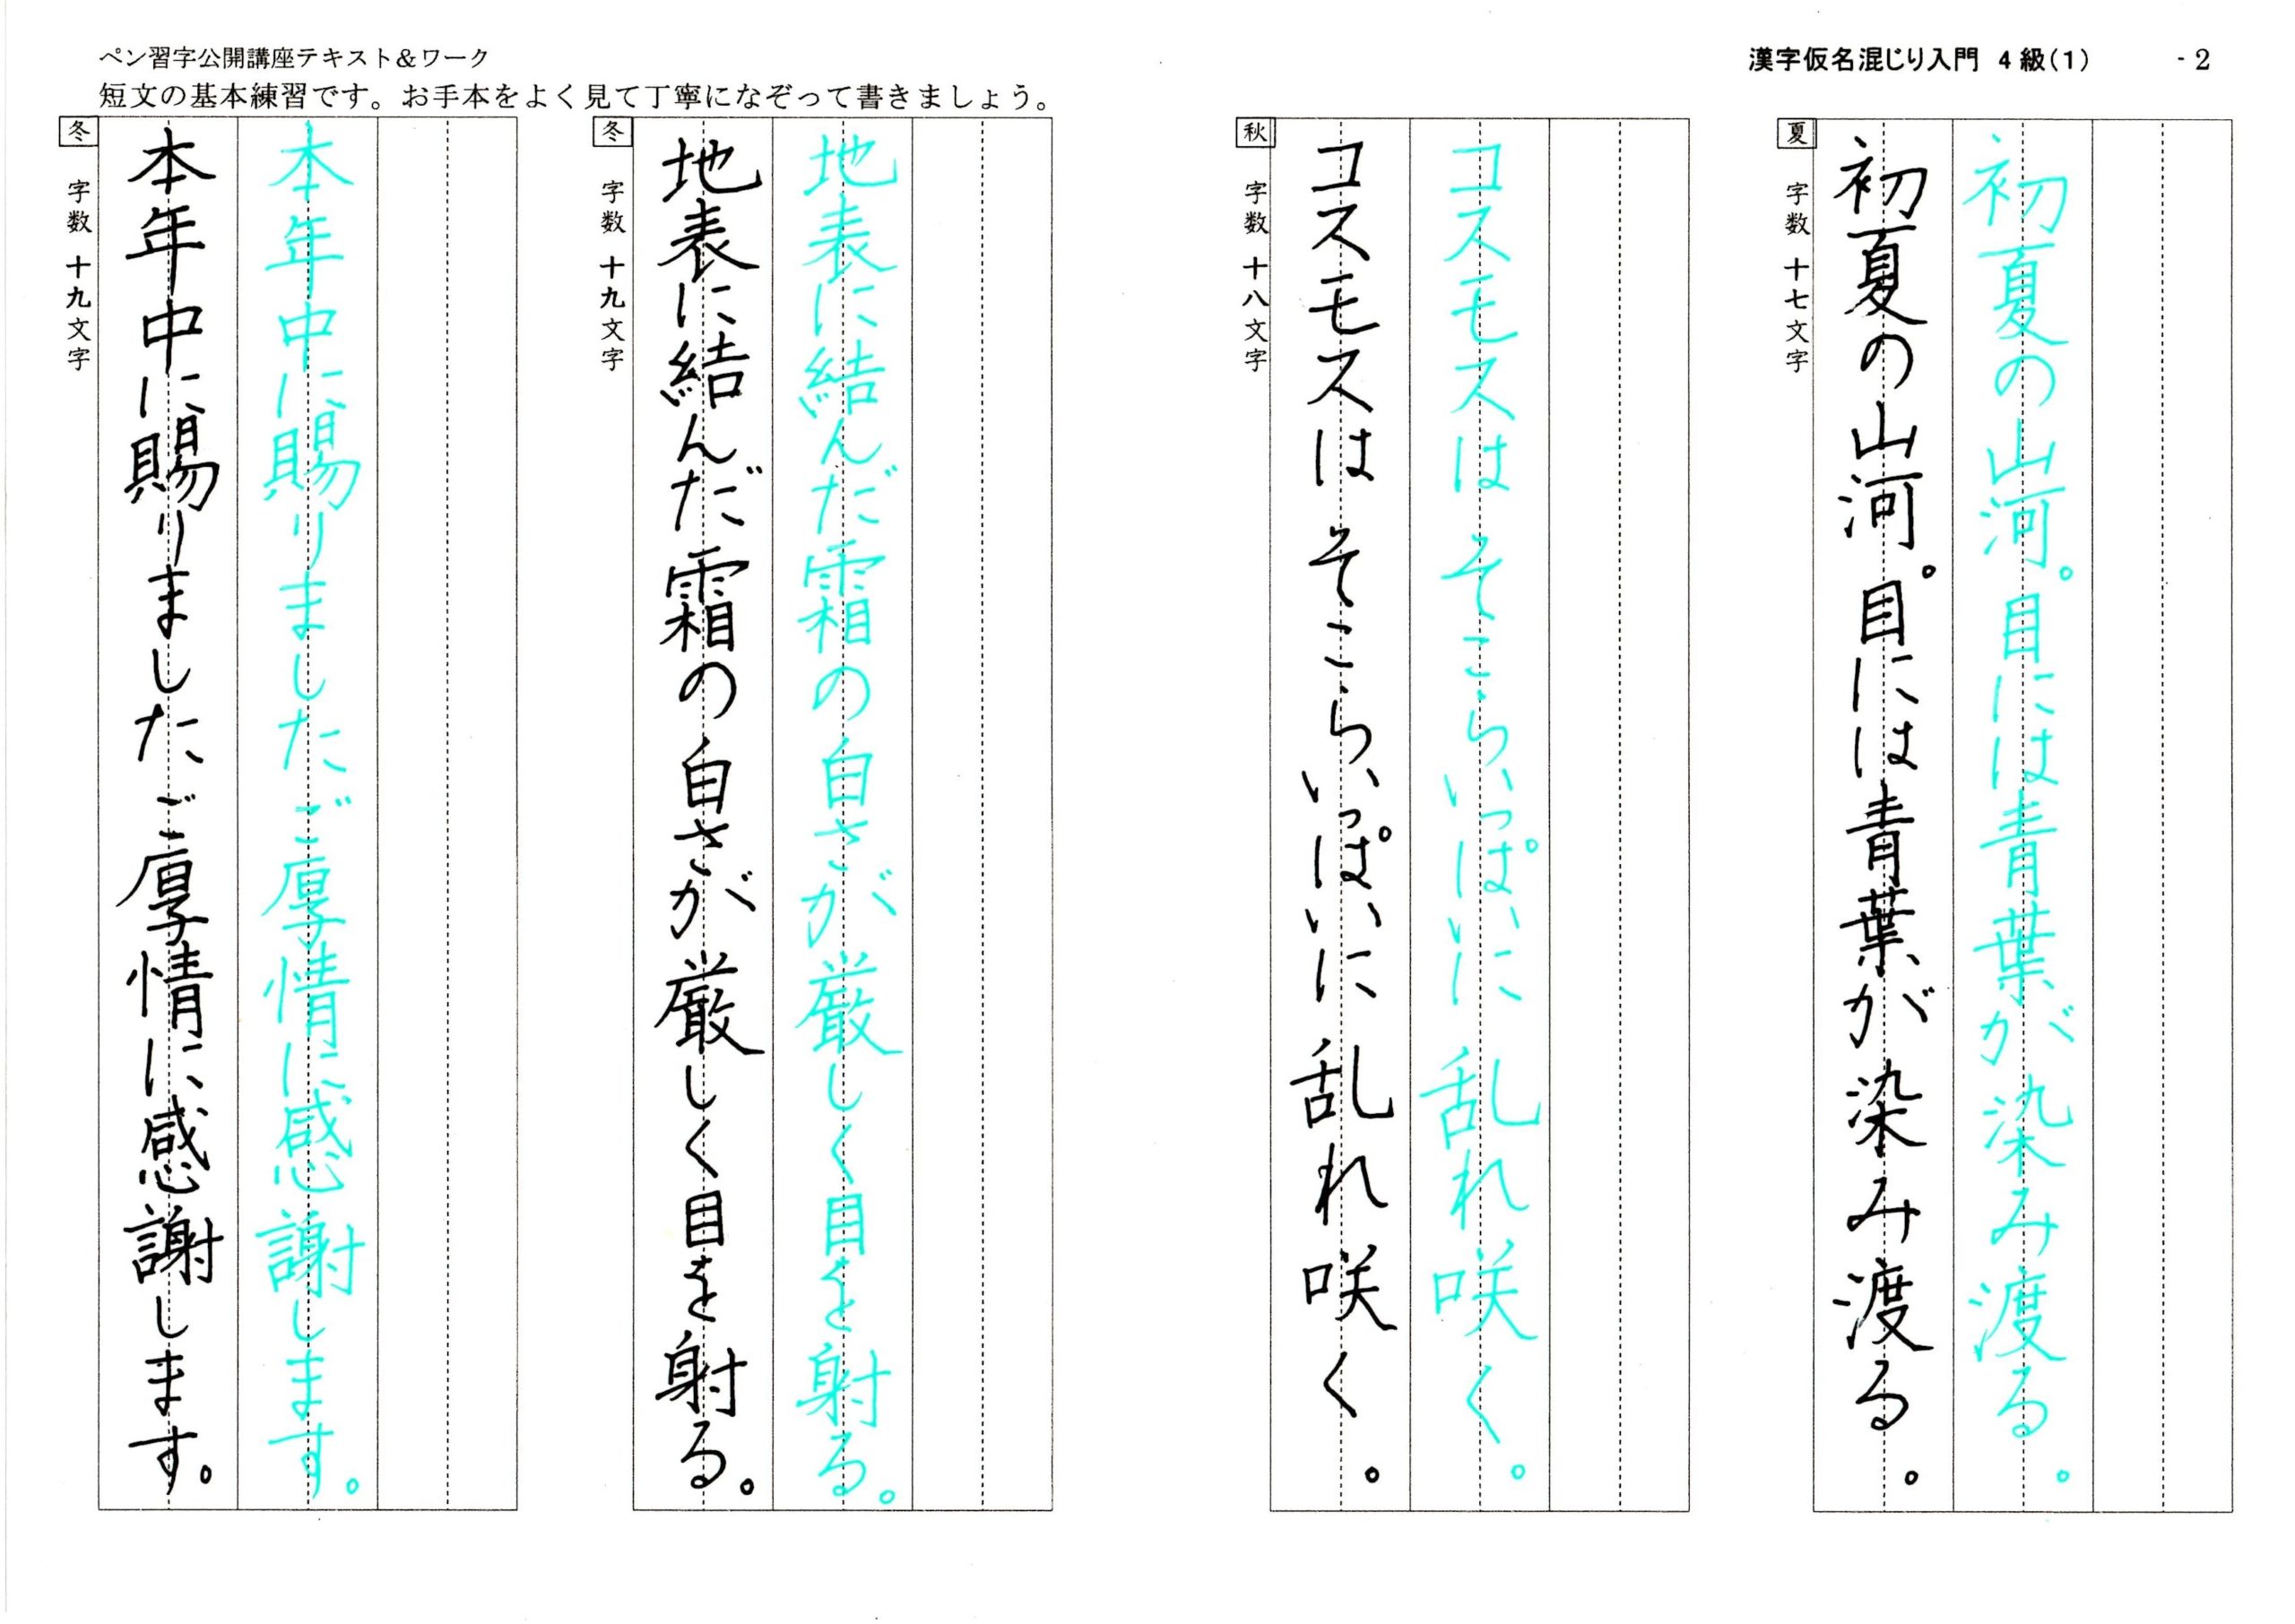 ペン習字公開講座テキスト&ワーク
漢字仮名混じり入門 4級(1) -2
短文の基本練習です。お手本をよく見て丁寧になぞって書きましょう。
夏
字数 十七文字
初夏の山河。目には青葉が染み渡る。
初夏の山河。目には青葉が染み渡る。
秋
字数 十八文字
コスモスは そこらいっぱいに 乱れ咲く。
コスモスは そこらいっぱいに 乱れ咲く。
冬
字数 十九文字
地表に結んだ霜の白さが厳しく目を射る。
地表に結んだ霜の白さが厳しく目を射る。
冬
字数 十九文字
本年中に賜りました ご厚情に感謝します。
本年中に賜りました ご厚情に感謝します。